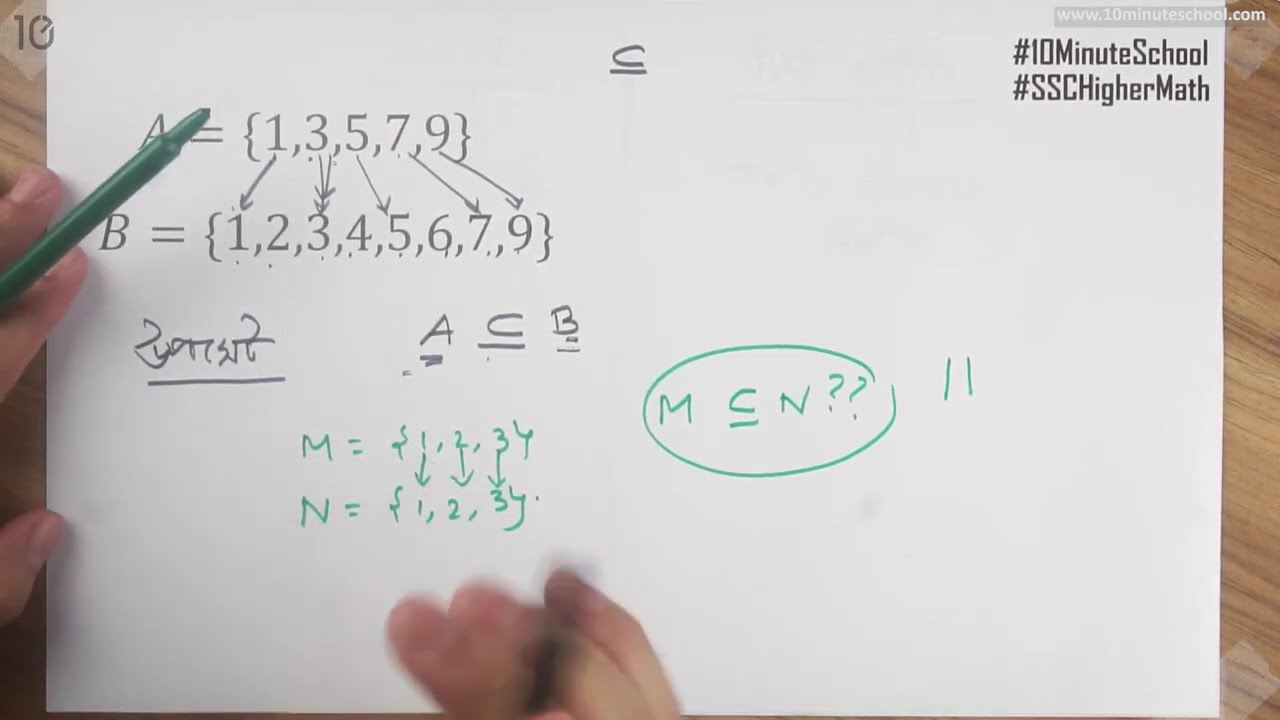 10
www.10minuteschool.com
#10MinuteSchool
#SSCHigherMath
⊆
A = {1,3,5,7,9}
B = {1,2,3,4,5,6,7,9}
উপসেট
A ⊆ B
M ⊆ N ??
M = {1, 2, 3}
N = {1, 2, 3}